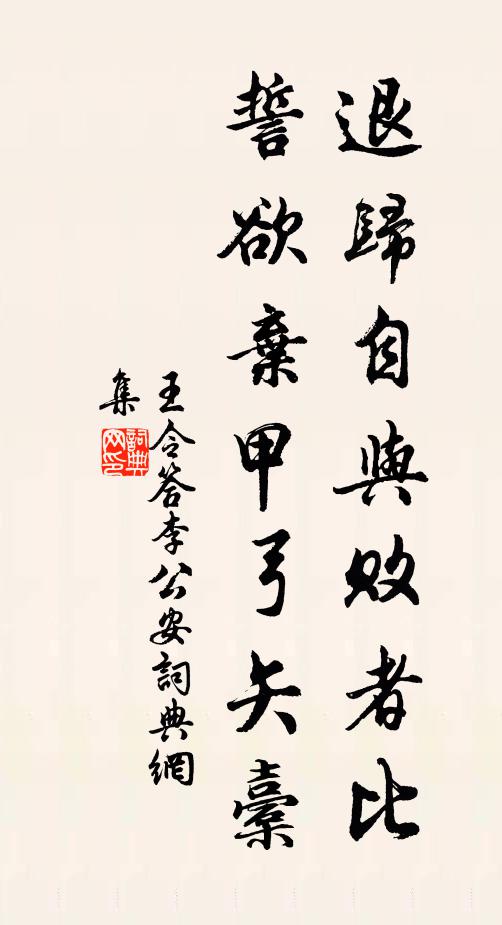 退歸自與敗者比
誓欲棄甲弓矢櫜
王令答李公安詞典網
集
詞典網印